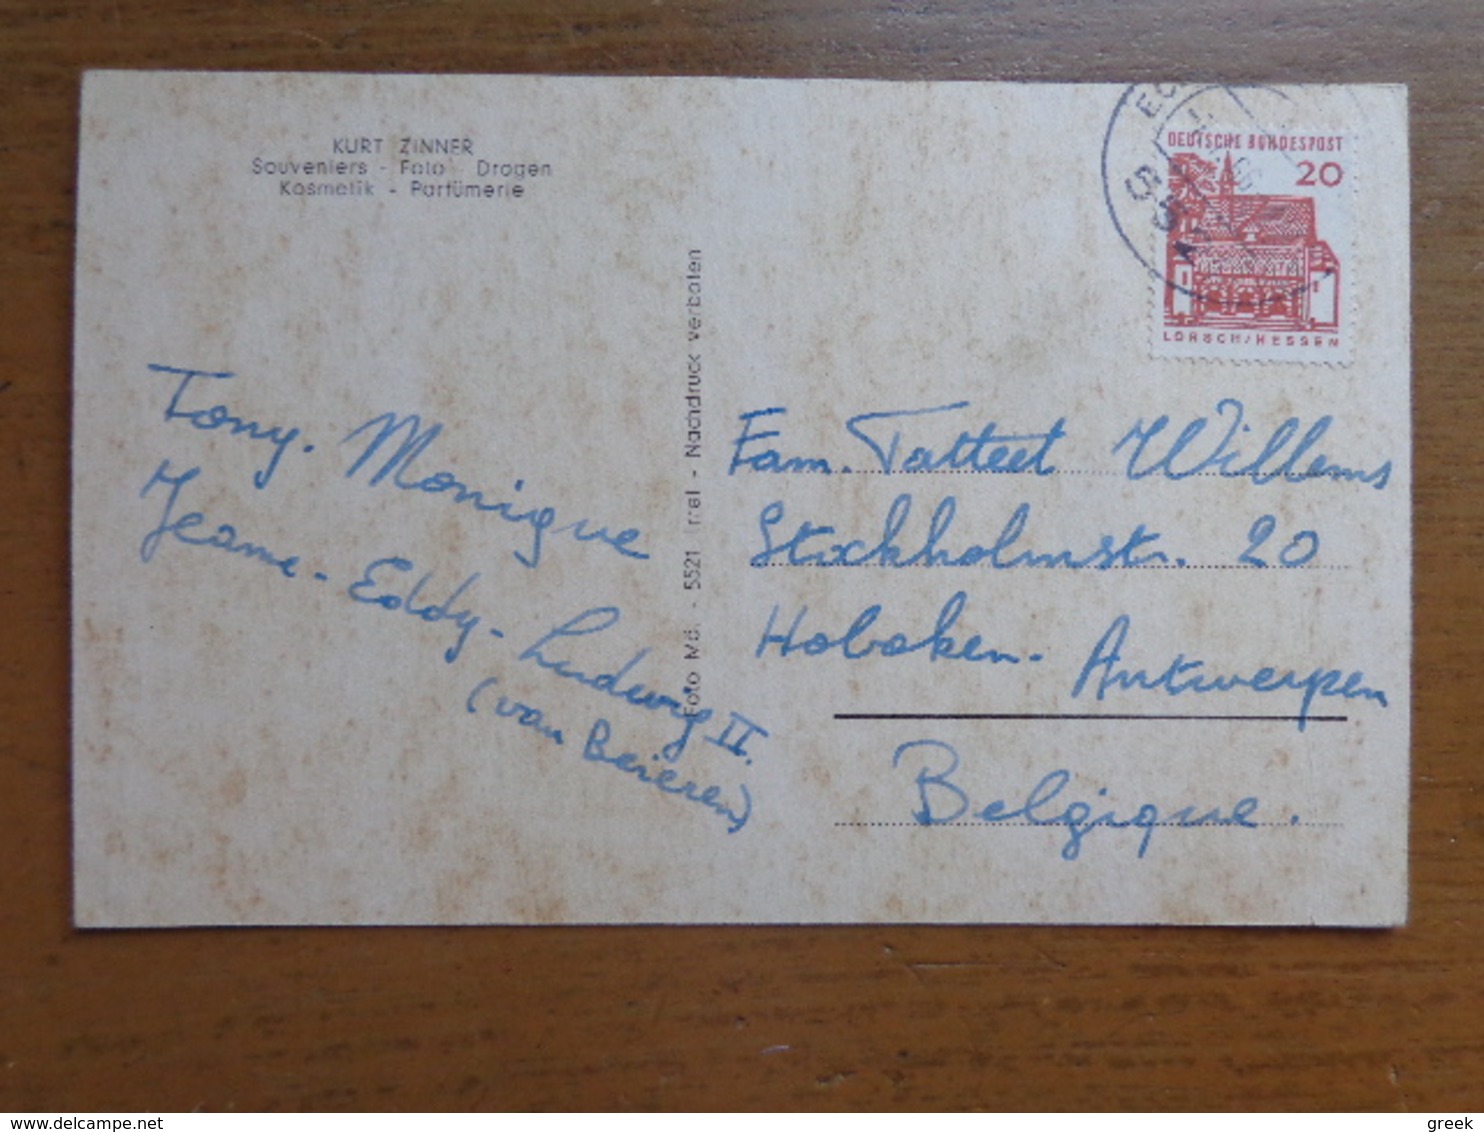 KURT ZINNER
Souveniers - Foto Drogen
Kosmetik - Parfümerie
DEUTSCHE BUNDESPOST
20
LORSCH/HESSEN
Tony. Monique
Jeanne - Eddy - Ludwig II.
(van Beieren)
Foto Mö. - 5521 Irrel - Nachdruck verboten
Fam. Tatteet Willems
Stockholmstr. 20
Hoboken - Antwerpen
Belgique.
delcampe.net
greek